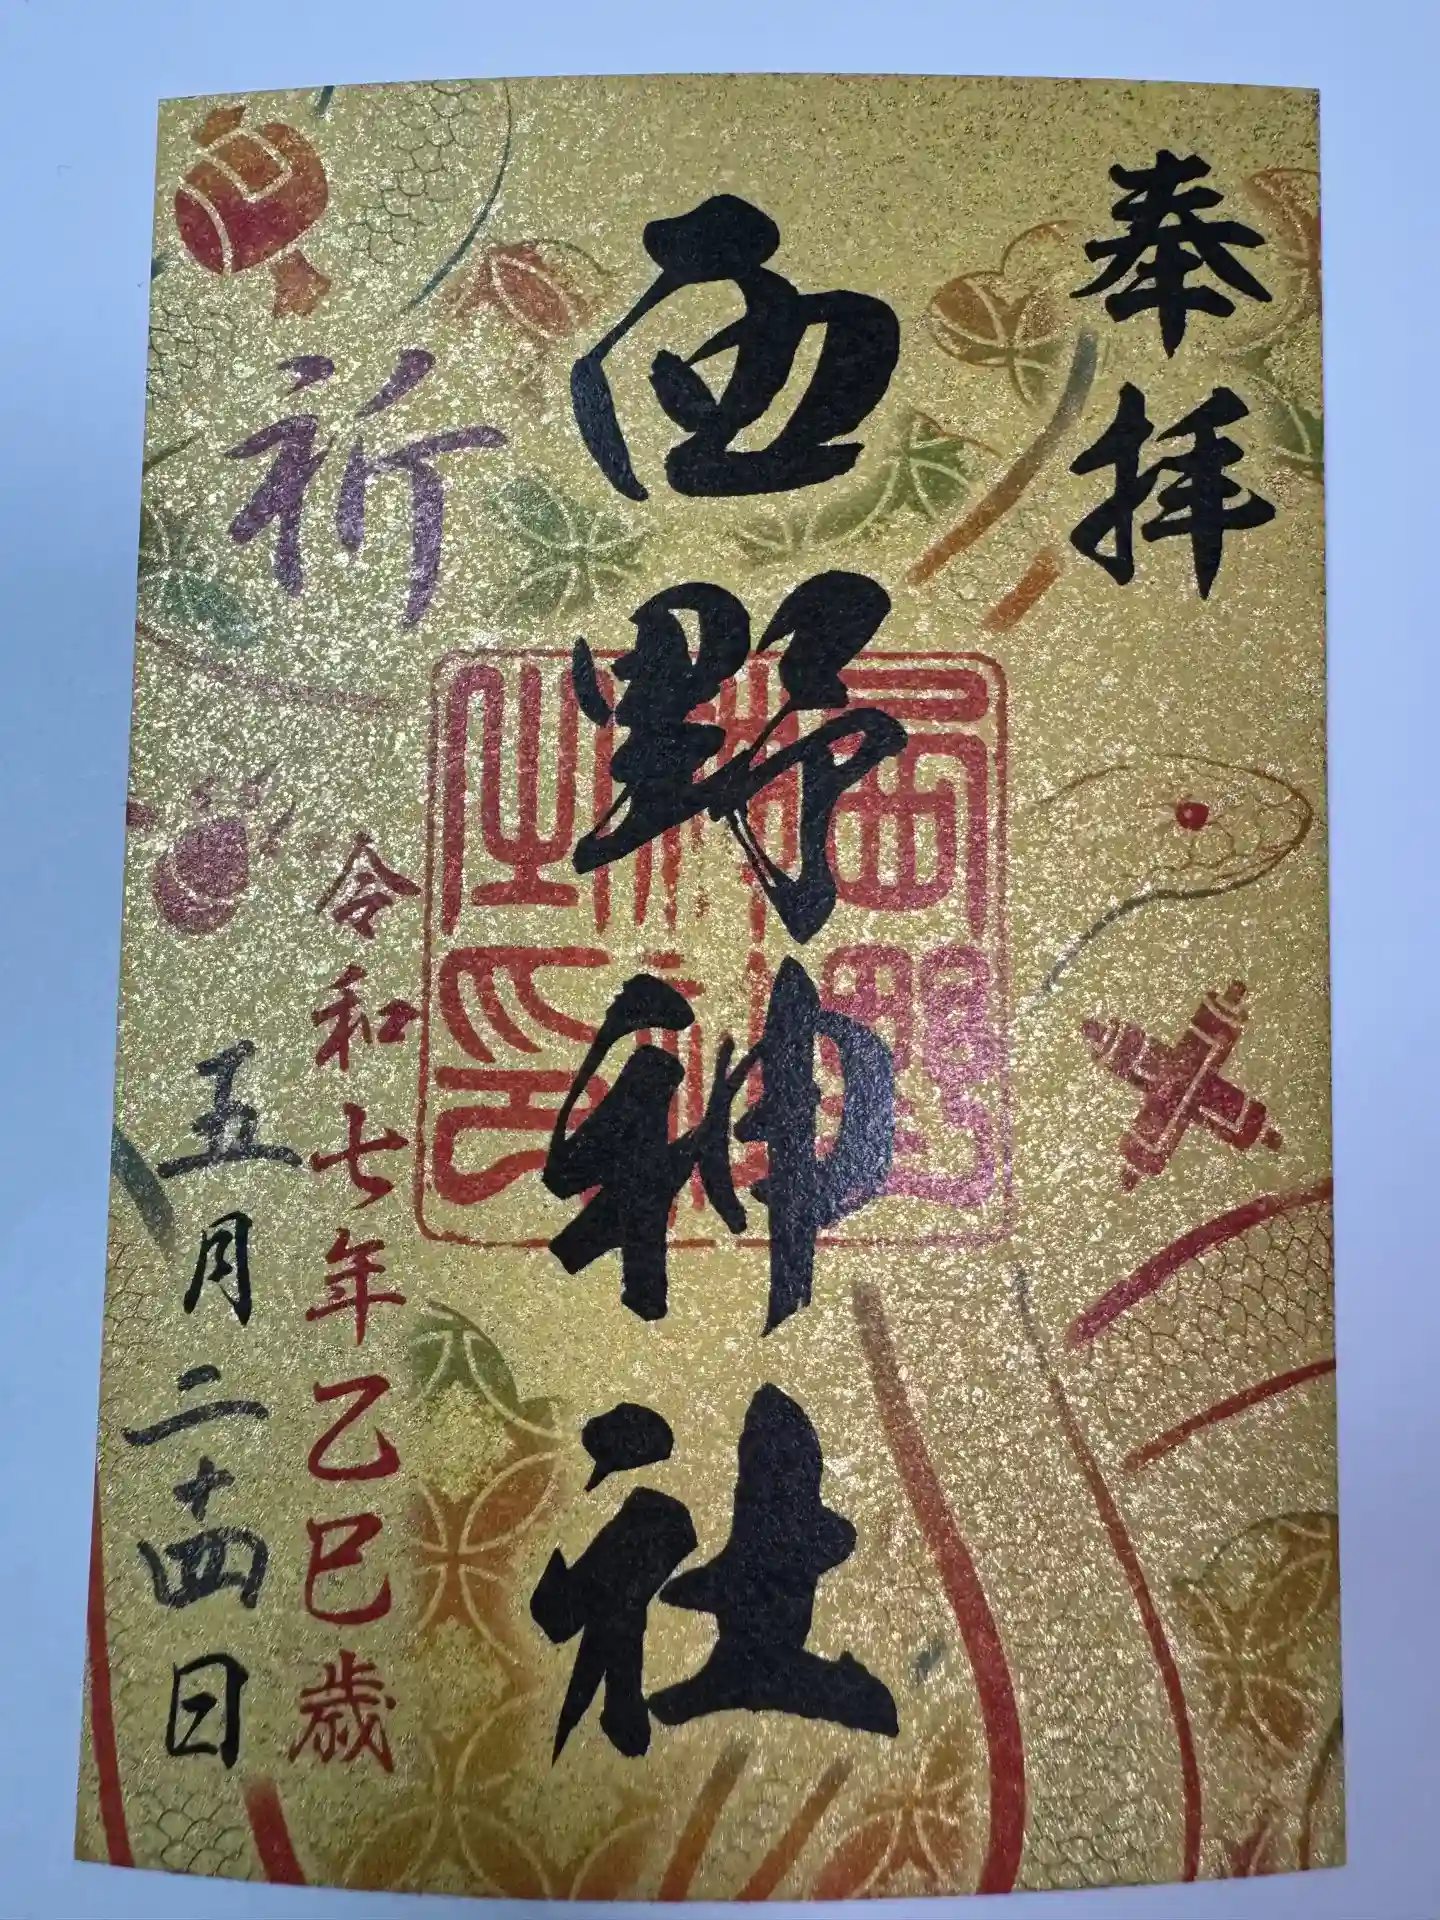 奉拝
西野神社
西野神社之印
祈
令和七年乙巳歳
五月二十四日